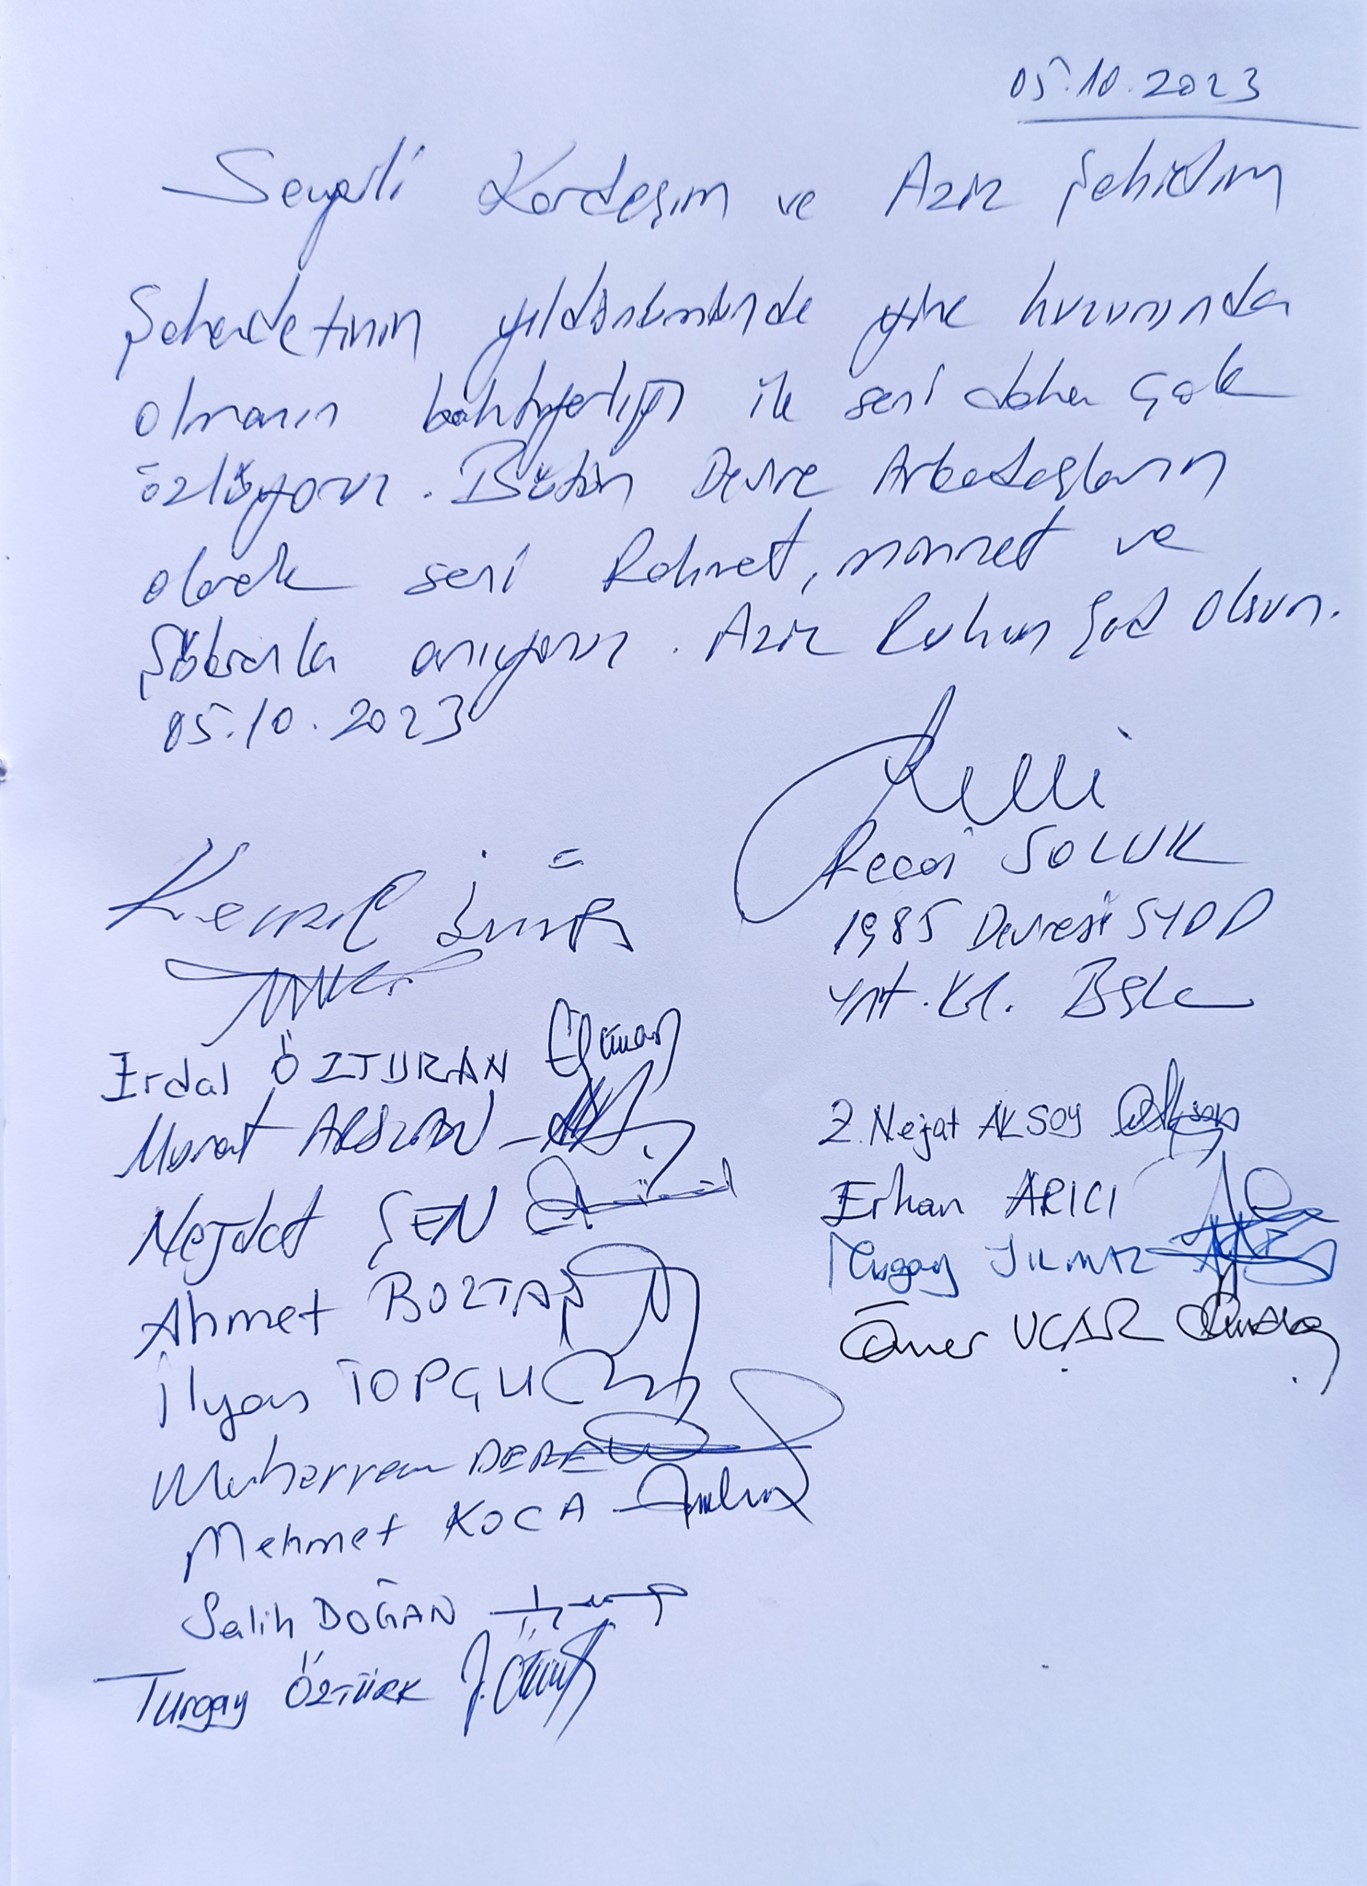 05.10.2023
Sevgili Kardeşim ve Aziz Şehidim
Şehadetinin yıldönümünde yine huzurunda
olmanın bahtiyarlığı ile seni daha çok
özlüyoruz. Bütün Devre Arkadaşların
olarak seni Rahmet, minnet ve
Şükranla anıyoruz. Aziz Ruhun Şad Olsun.
05.10.2023
Recai SOLUK
1985 Devresi SYDD
Ynt. Kl. Bşk
Kemal
Erdal ÖZTURAN
Murat ARSLAN
Nejdet ŞEN
Ahmet BOZTAŞ
İlyas TOPÇU
Muharrem DERE
Mehmet KOCA
Salih DOĞAN
Turgay ÖZTÜRK
Z. Nejat AKSOY
Erhan ARICI
YILMAZ
Ömer UÇAR